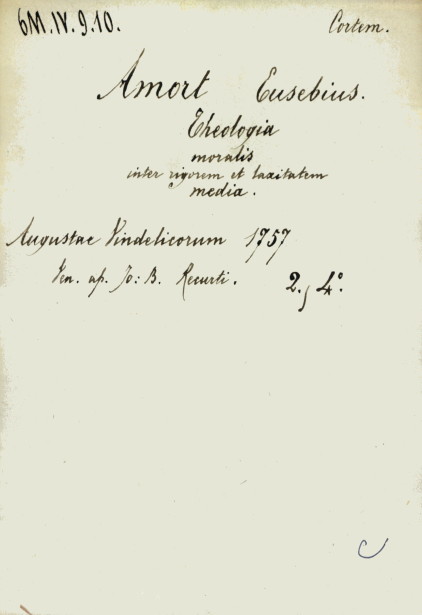 6M.IV.9.10.
Cortem.
Amort Eusebius.
Theologia
moralis
inter rigorem et laxitatem
media.
Augustae Vindelicorum 1757
Ven. ap. Jo: B. Recurti.
2., 4°.